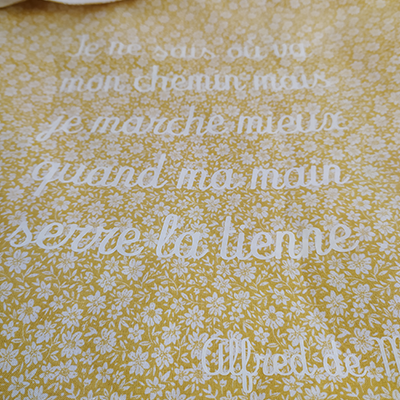 Je ne sais où va
mon chemin mais
je marche mieux
quand ma main
serre la tienne
Alfred de M